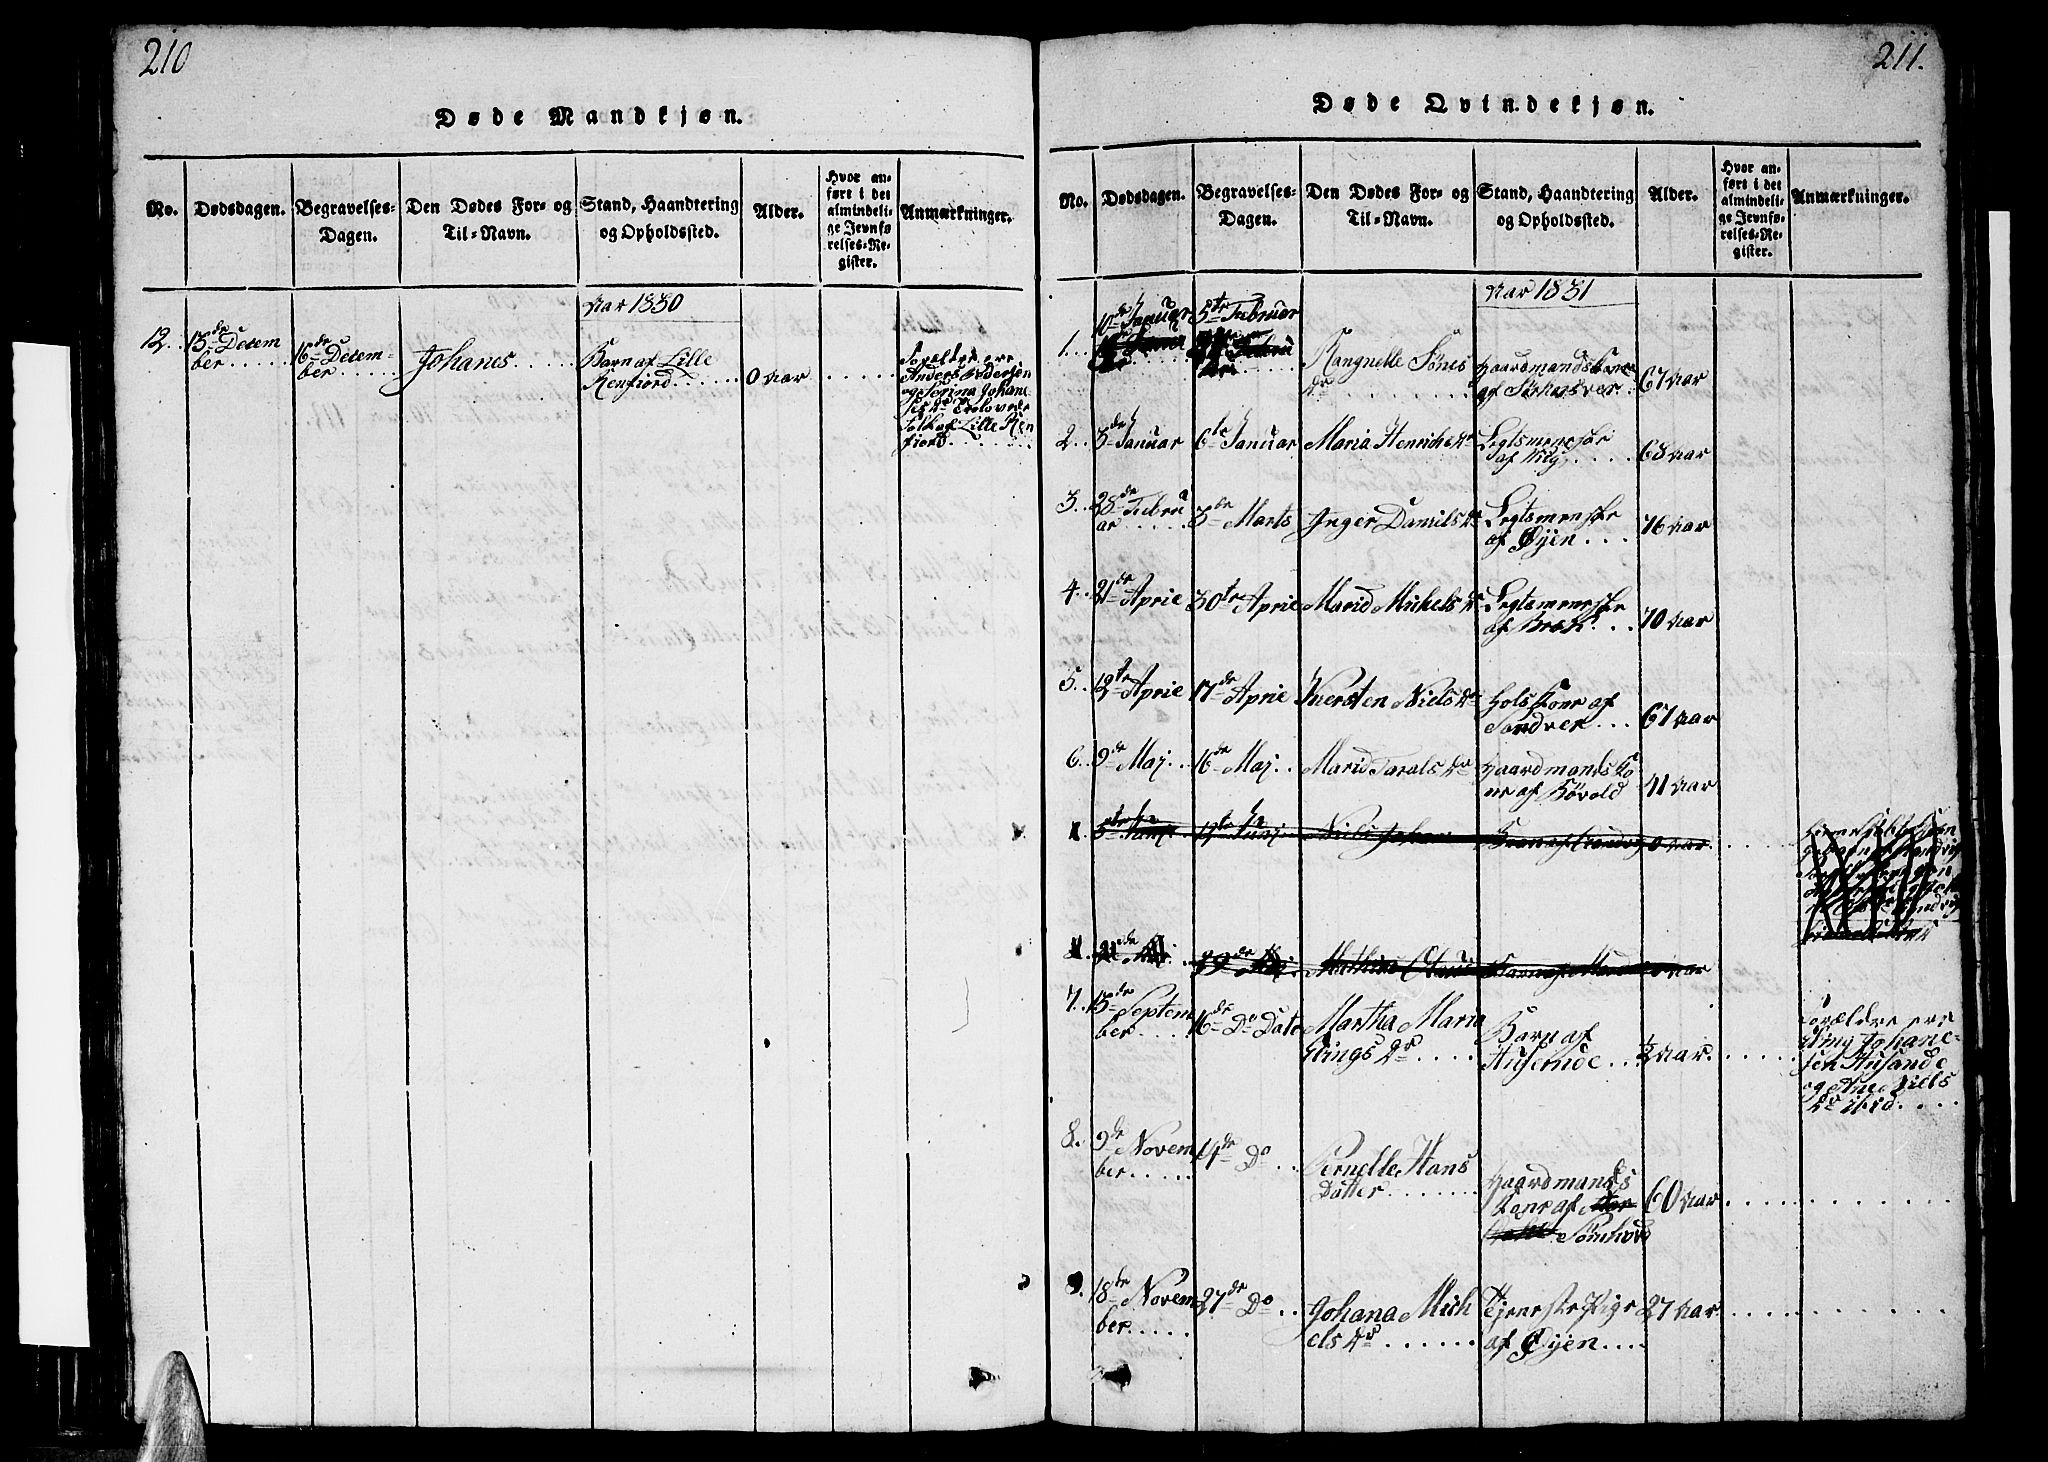 210
Døde Mandkjøn.
No.
Dødsdagen.
Begravelses-
Dagen.
Den Dødes For- og
Til-Navn.
Stand, Haandtering
og Opholdssted.
Alder.
Hvor an-
ført i det
almindeli-
ge Jevnfø-
relses-Re-
gister.
Anmærkninger.
Aar 1830
12.
15de Decem
ber
16de Decem-
ber
Johanes
Barn af Lille
Renfiord
0 Aar
Forældre ere
Anders Pedersen
og Serina Johane
ses Dr
Folk af Lille Ren
fiord
211.
Døde Qvindekjøn.
No.
Dødsdagen.
Begravelses-
Dagen.
Den Dødes For- og
Til-Navn.
Stand, Haandtering
og Opholdssted.
Alder.
Hvor an-
ført i det
almindeli-
ge Jevnfø-
relses-Re-
gister.
Anmærkninger.
Aar 1831
1.
10de Januar
5te Februar
Rangnelle Jönes
dr
Gaardmandskone
af
67 Aar
2.
3de Januar
6te Januar
Maria Henrichs dr
Legtsmenske
af Vig
68 Aar
3.
28de Febru
ar
3de Marts
Inger Daniels dr
Legtsmenske
af Øyen
76 Aar
4.
21de April
30te April
Marid Mikels dr
Legtsmenske
af
70 Aar
5.
12te April
17de April
Kiersten Niels dr
Holskone af
Sandver
67 Aar
6.
9de Maj
16de Maj
Marid Tarals dr
Gaardmands Ko
ne af Bövold
41 Aar
5te Junj
12te Junj
Barn af
0 Aar
7.
15de Septem
ber
16de Do Dato
Martha Maria
Elings Dr
Barn af
Ausende
1/2 Aar
Forældre ere
Eling Johane-
sen Ausande
og Ane Niels
dr ibid.
8.
9de Novem
ber
14de Do
Pernelle Hans
Datter
Gaardmands
kone af
Sömhovd
60 Aar
9.
18de Novem
ber
27de Do
Johana Mich
els dr
Tjeneste Pige
af Øyen
27 Aar